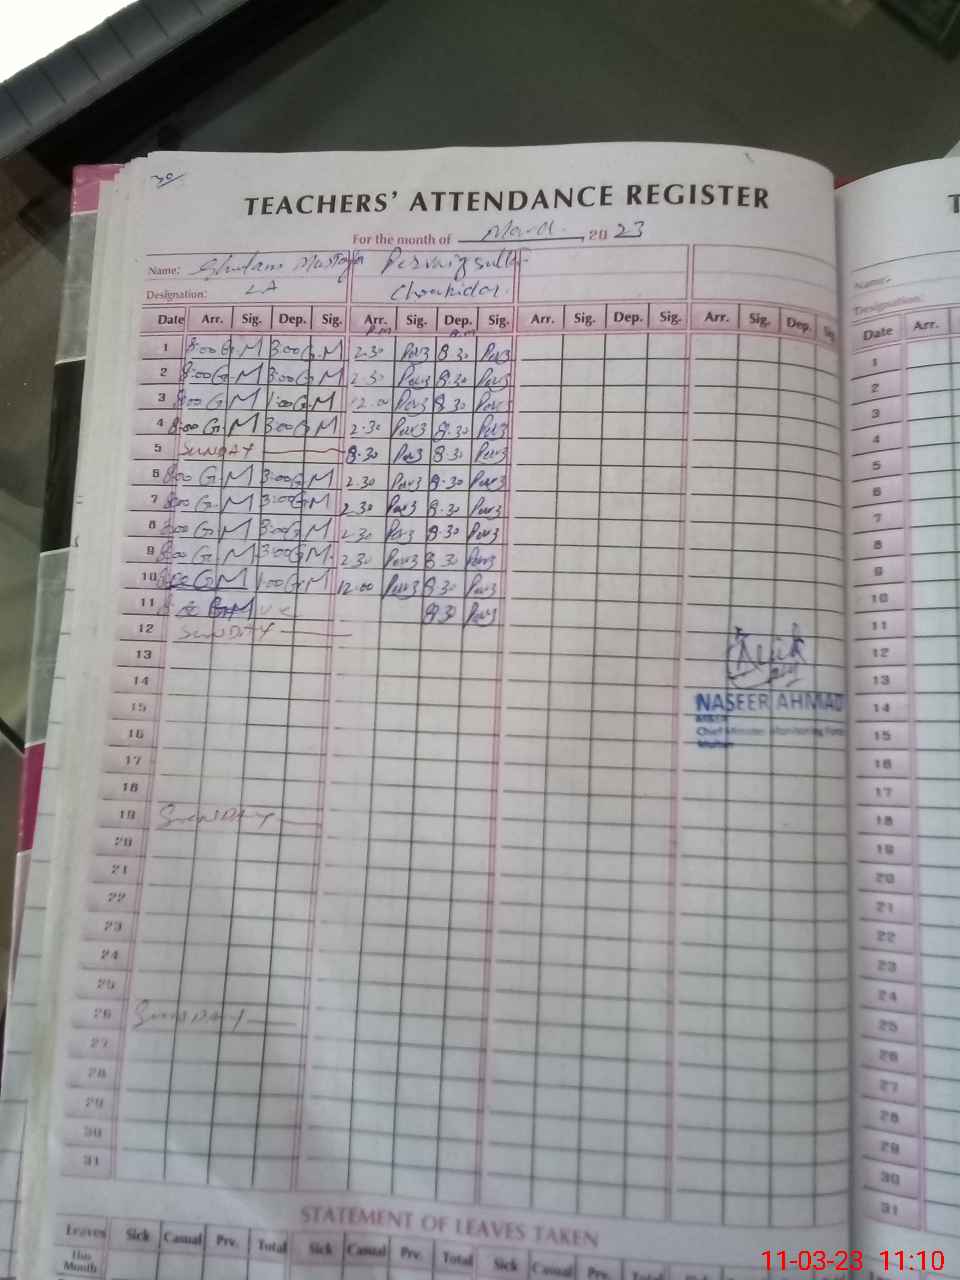 30
TEACHERS' ATTENDANCE REGISTER
For the month of March 2023
Name: Ghulam Mustafa
Designation: LA Chowkidar
Date Arr. Sig. Dep. Sig. Arr. Sig. Dep. Sig. Arr. Sig. Dep. Sig. Arr. Sig. Dep. Sig.
P.M
1 8:00 G.M 3:00 G.M 2.30 8.30
2 8:00 G.M 3:00 G.M 2.30 8.30
3 8:00 G.M 1:00 G.M 12.00 8.30
4 8:00 G.M 3:00 G.M 2.30 8.30
5 SUNDAY 8.30 8.30
6 8:00 G.M 3:00 G.M 2.30 8.30
7 8:00 G.M 3:00 G.M 2.30 8.30
8 8:00 G.M 3:00 G.M 2.30 8.30
9 8:00 G.M 3:00 G.M 2.30 8.30
10 8:00 G.M 1:00 G.M 12.00 8.30
11 8.30
12 SUNDAY
13
14
15
16
17
18
19 SUNDAY
20
21
22
23
24
25
26 SUNDAY
27
28
29
30
31
NASEER AHMAD
Chief Minister Monitoring Force
Multan
STATEMENT OF LEAVES TAKEN
Leaves Sick Casual Prv. Total Sick Casual Prv. Total Sick Casual Prv.
This Month
T
Name:
Designation:
Date Arr.
1
2
3
4
5
6
7
8
9
10
11
12
13
14
15
16
17
18
19
20
21
22
23
24
25
26
27
28
29
30
31
11-03-23 11:10